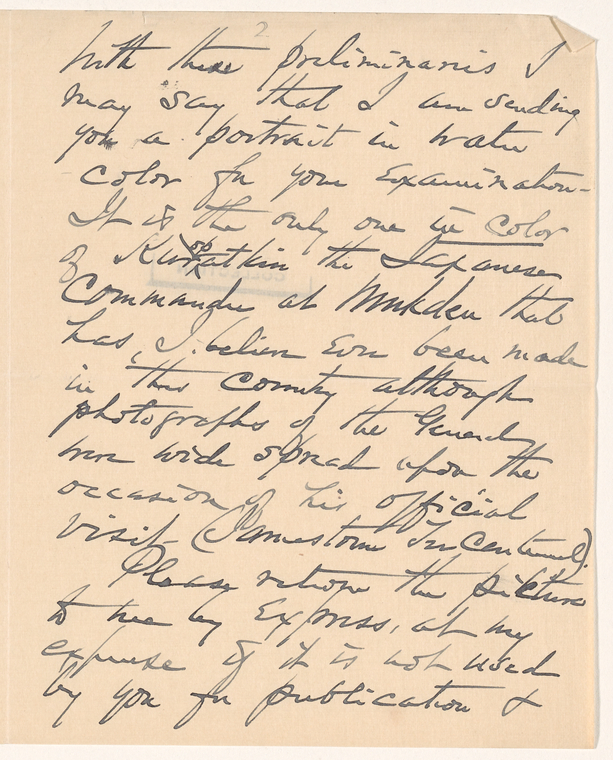 2
With these preliminaries I
may say that I am sending
you a portrait in water
color for your Examination -
It is the only one in color
of Kuropatkin the Japanese
Commander at Mukden that
has, I believe Ever been made
in this country although
photographs of the General
were wide spread upon the
occasion of his official
visit (Jamestown Tricentennial).
Please return the picture
to me by Express, at my
expense if it is not used
by you for publication &